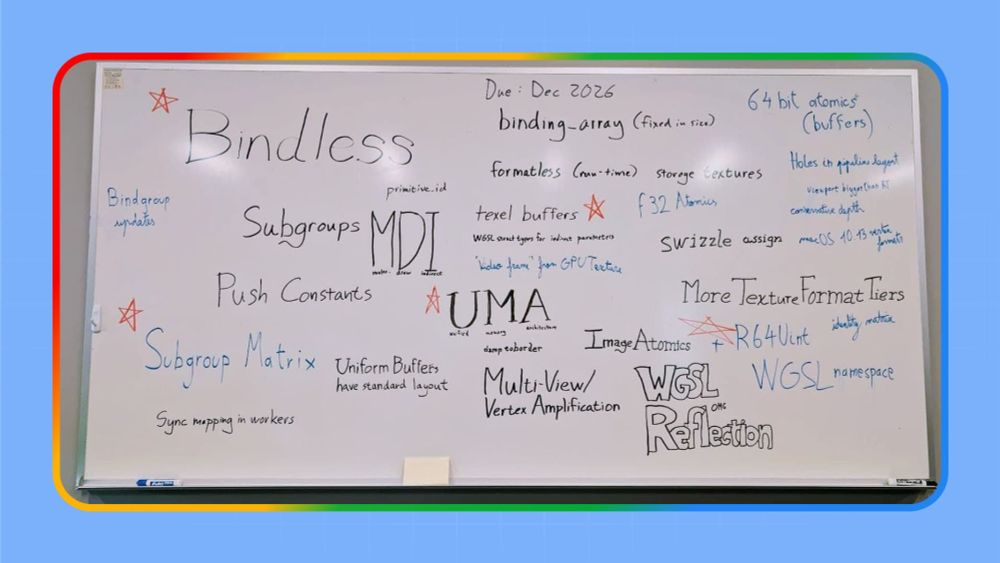 Due: Dec 2026
Bindless
binding_array (fixed in size)
64 bit atomics
(buffers)
formatless (run-time) storage textures
Holes in pipeline layout
viewport bigger than RT
conservative depth
macOS 10.13 vertex
formats
Bindgroup
updates
primitive_id
Subgroups
MDI
multi- draw indirect
texel buffers
f32 Atomics
WGSL struct types for indirect parameters
swizzle assign
"Video frame" from GPUTexture
Push Constants
UMA
unified memory architecture
More Texture Format Tiers
identity matrix
Subgroup Matrix
clamp to border
Image Atomics + R64Uint
Uniform Buffers
have standard layout
Multi-View/
Vertex Amplification
WGSL
OMG
Reflection
WGSL namespace
Sync mapping in workers